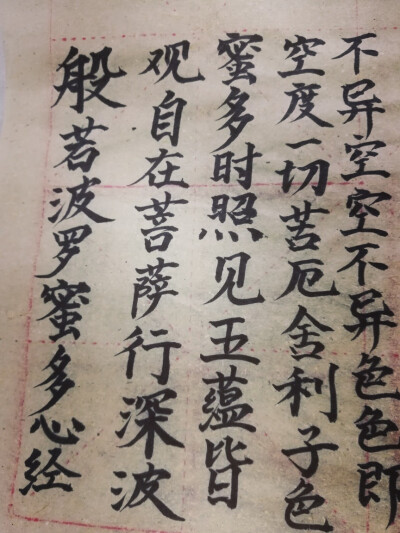 般若波罗蜜多心经
观自在菩萨行深波
蜜多时照见五蕴皆
空度一切苦厄舍利子色
不异空空不异色色即